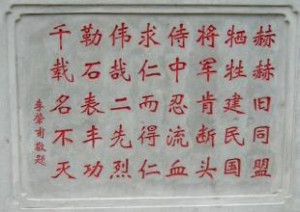 赫赫旧同盟
牺牲建民国
将军肯断头
侍中忍流血
求仁而得仁
伟哉二先烈
勒石表丰功
千载名不灭
李肇甫敬题